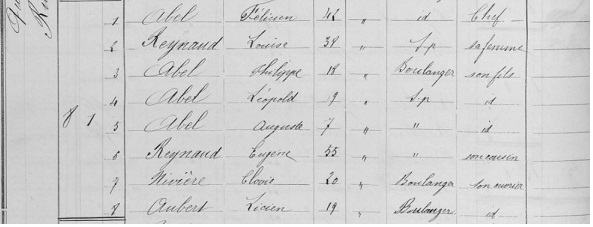 1 Abel Félicien 42 " id Chef
2 Reynaud Louise 38 " s.p sa femme
3 Abel Philippe 18 " Boulanger son fils
4 Abel Léopold 9 " s.p id
8 1
5 Abel Auguste 7 " " id
6 Reynaud Eugène 35 " " son cousin
7 Rivière Clovis 20 " Boulanger son ouvrier
8 Aubert Lucien 19 " Boulanger id